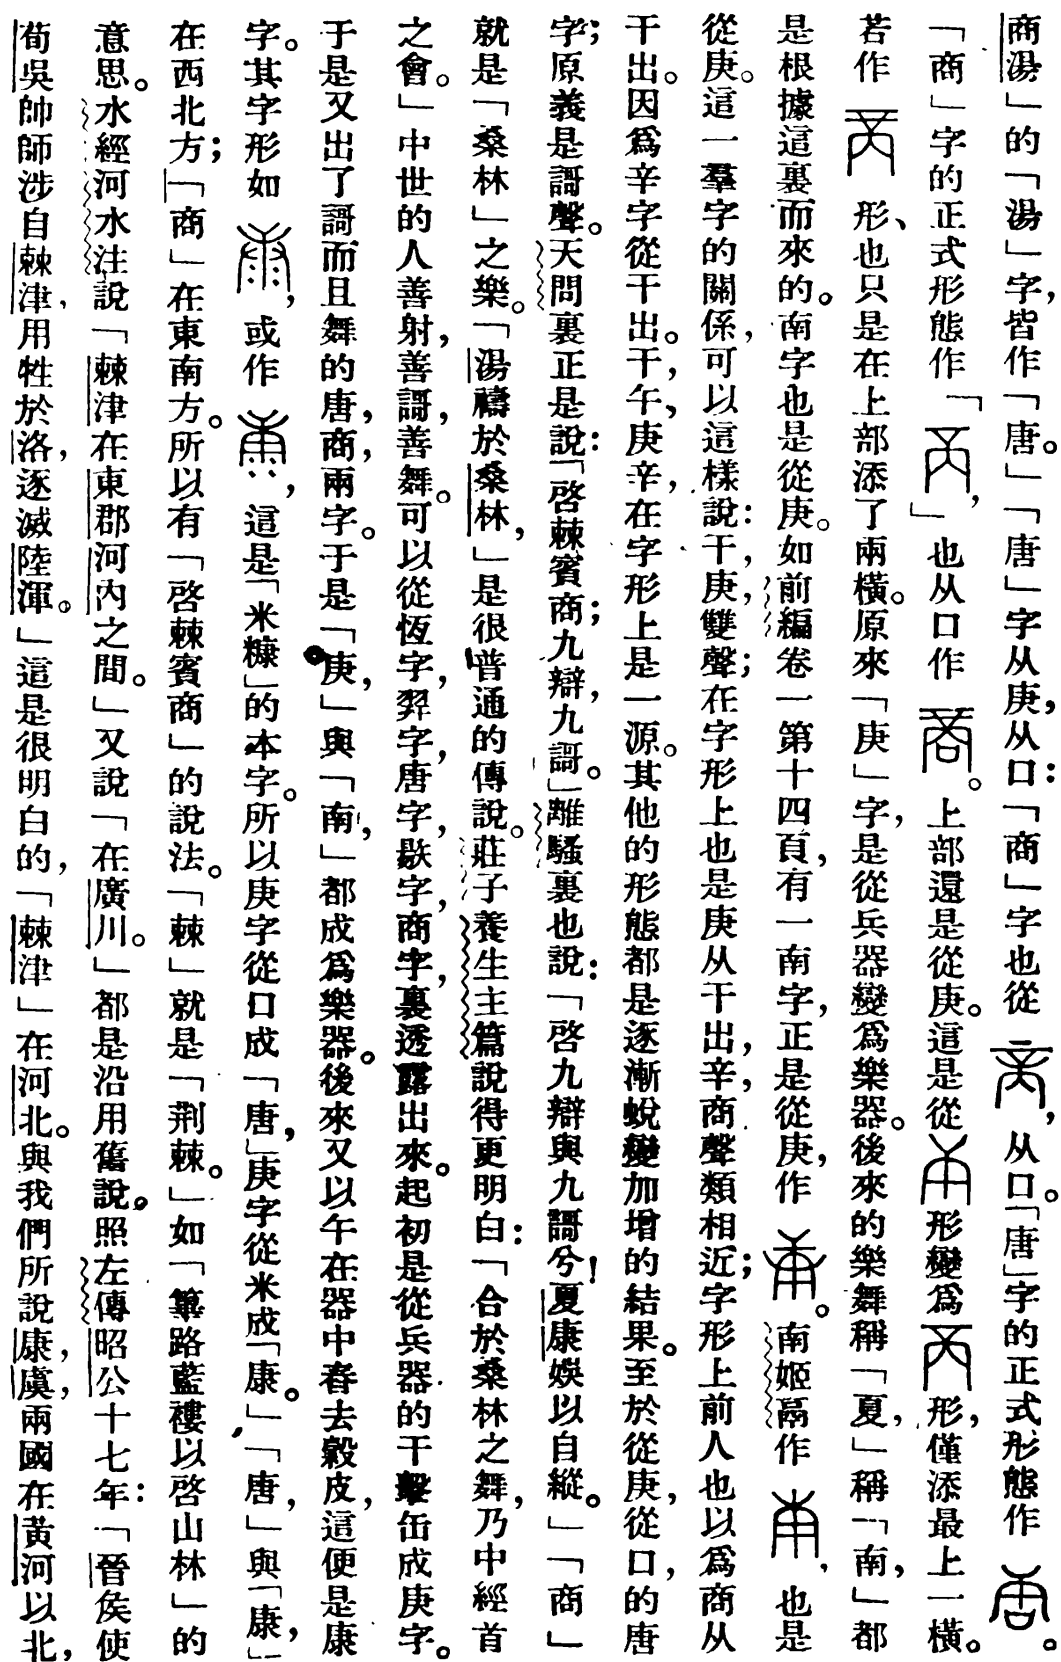 商湯」的「湯」字，皆作「唐。」「唐」字从庚，从口：「商」字也從，从口。「唐」字的正式形態作。
「商」字的正式形態作「」，也从口作。上部還是從庚。這是從形變爲形，僅添最上一橫。
若作形、也只是在上部添了兩橫。原來「庚」字，是從兵器變爲樂器。後來的樂舞稱「夏，」稱「南，」都
是根據這裏而來的。南字也是從庚。如前編卷一第十四頁，有一南字，正是從庚，作。南姬鬲作，也是
從庚。這一羣字的關係，可以這樣說：干，庚，雙聲；在字形上也是庚从干出，辛，商聲類相近；字形上前人也以爲商从
干出。因爲辛字從干出。干，午，庚，辛，在字形上是一源。其他的形態都是逐漸蛻變加增的結果。至於從庚，從口，的唐
字；原義是謌聲。天問裏正是說：「啓棘賓商；九辯，九謌。」離騷裏也說：「啓九辯與九謌兮！夏康娛以自縱。」「商」
就是「桑林」之樂。「湯禱於桑林，」是很普通的傳說。莊子養生主篇說得更明白：「合於桑林之舞，乃中經首
之會。」中世的人善射，善謌，善舞。可以從恆字，羿字，唐字，字，商字，裏透露出來。起初是從兵器的干擊缶成庚字。
于是又出了謌而且舞的唐，商，兩字。于是「庚，」與「南，」都成爲樂器。後來又以午在器中舂去穀皮，這便是康
字。其字形如，或作，這是「米糠」的本字。所以庚字從口成「唐，」庚字從米成「康。」「唐，」與「康，」
在西北方；「商」在東南方。所以有「啓棘賓商」的說法。「棘」就是「荆棘。」如「篳路藍褸以啓山林」的
意思。水經河水注說「棘津在東郡河內之間。」又說「在廣川。」都是沿用舊說。照左傳昭公十七年：「晉侯使
荀吳帥師涉自棘津，用牲於洛，逐滅陸渾。」這是很明白的，「棘津」在河北。與我們所說康，虞，兩國在黃河以北，